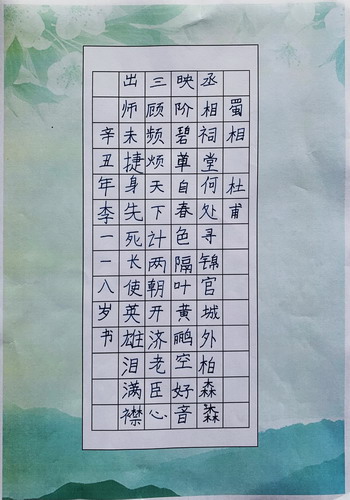 蜀相 杜甫
丞相祠堂何处寻锦官城外柏森森
映阶碧草自春色隔叶黄鹂空好音
三顾频烦天下计两朝开济老臣心
出师未捷身先死长使英雄泪满襟
辛丑年李一一八岁书